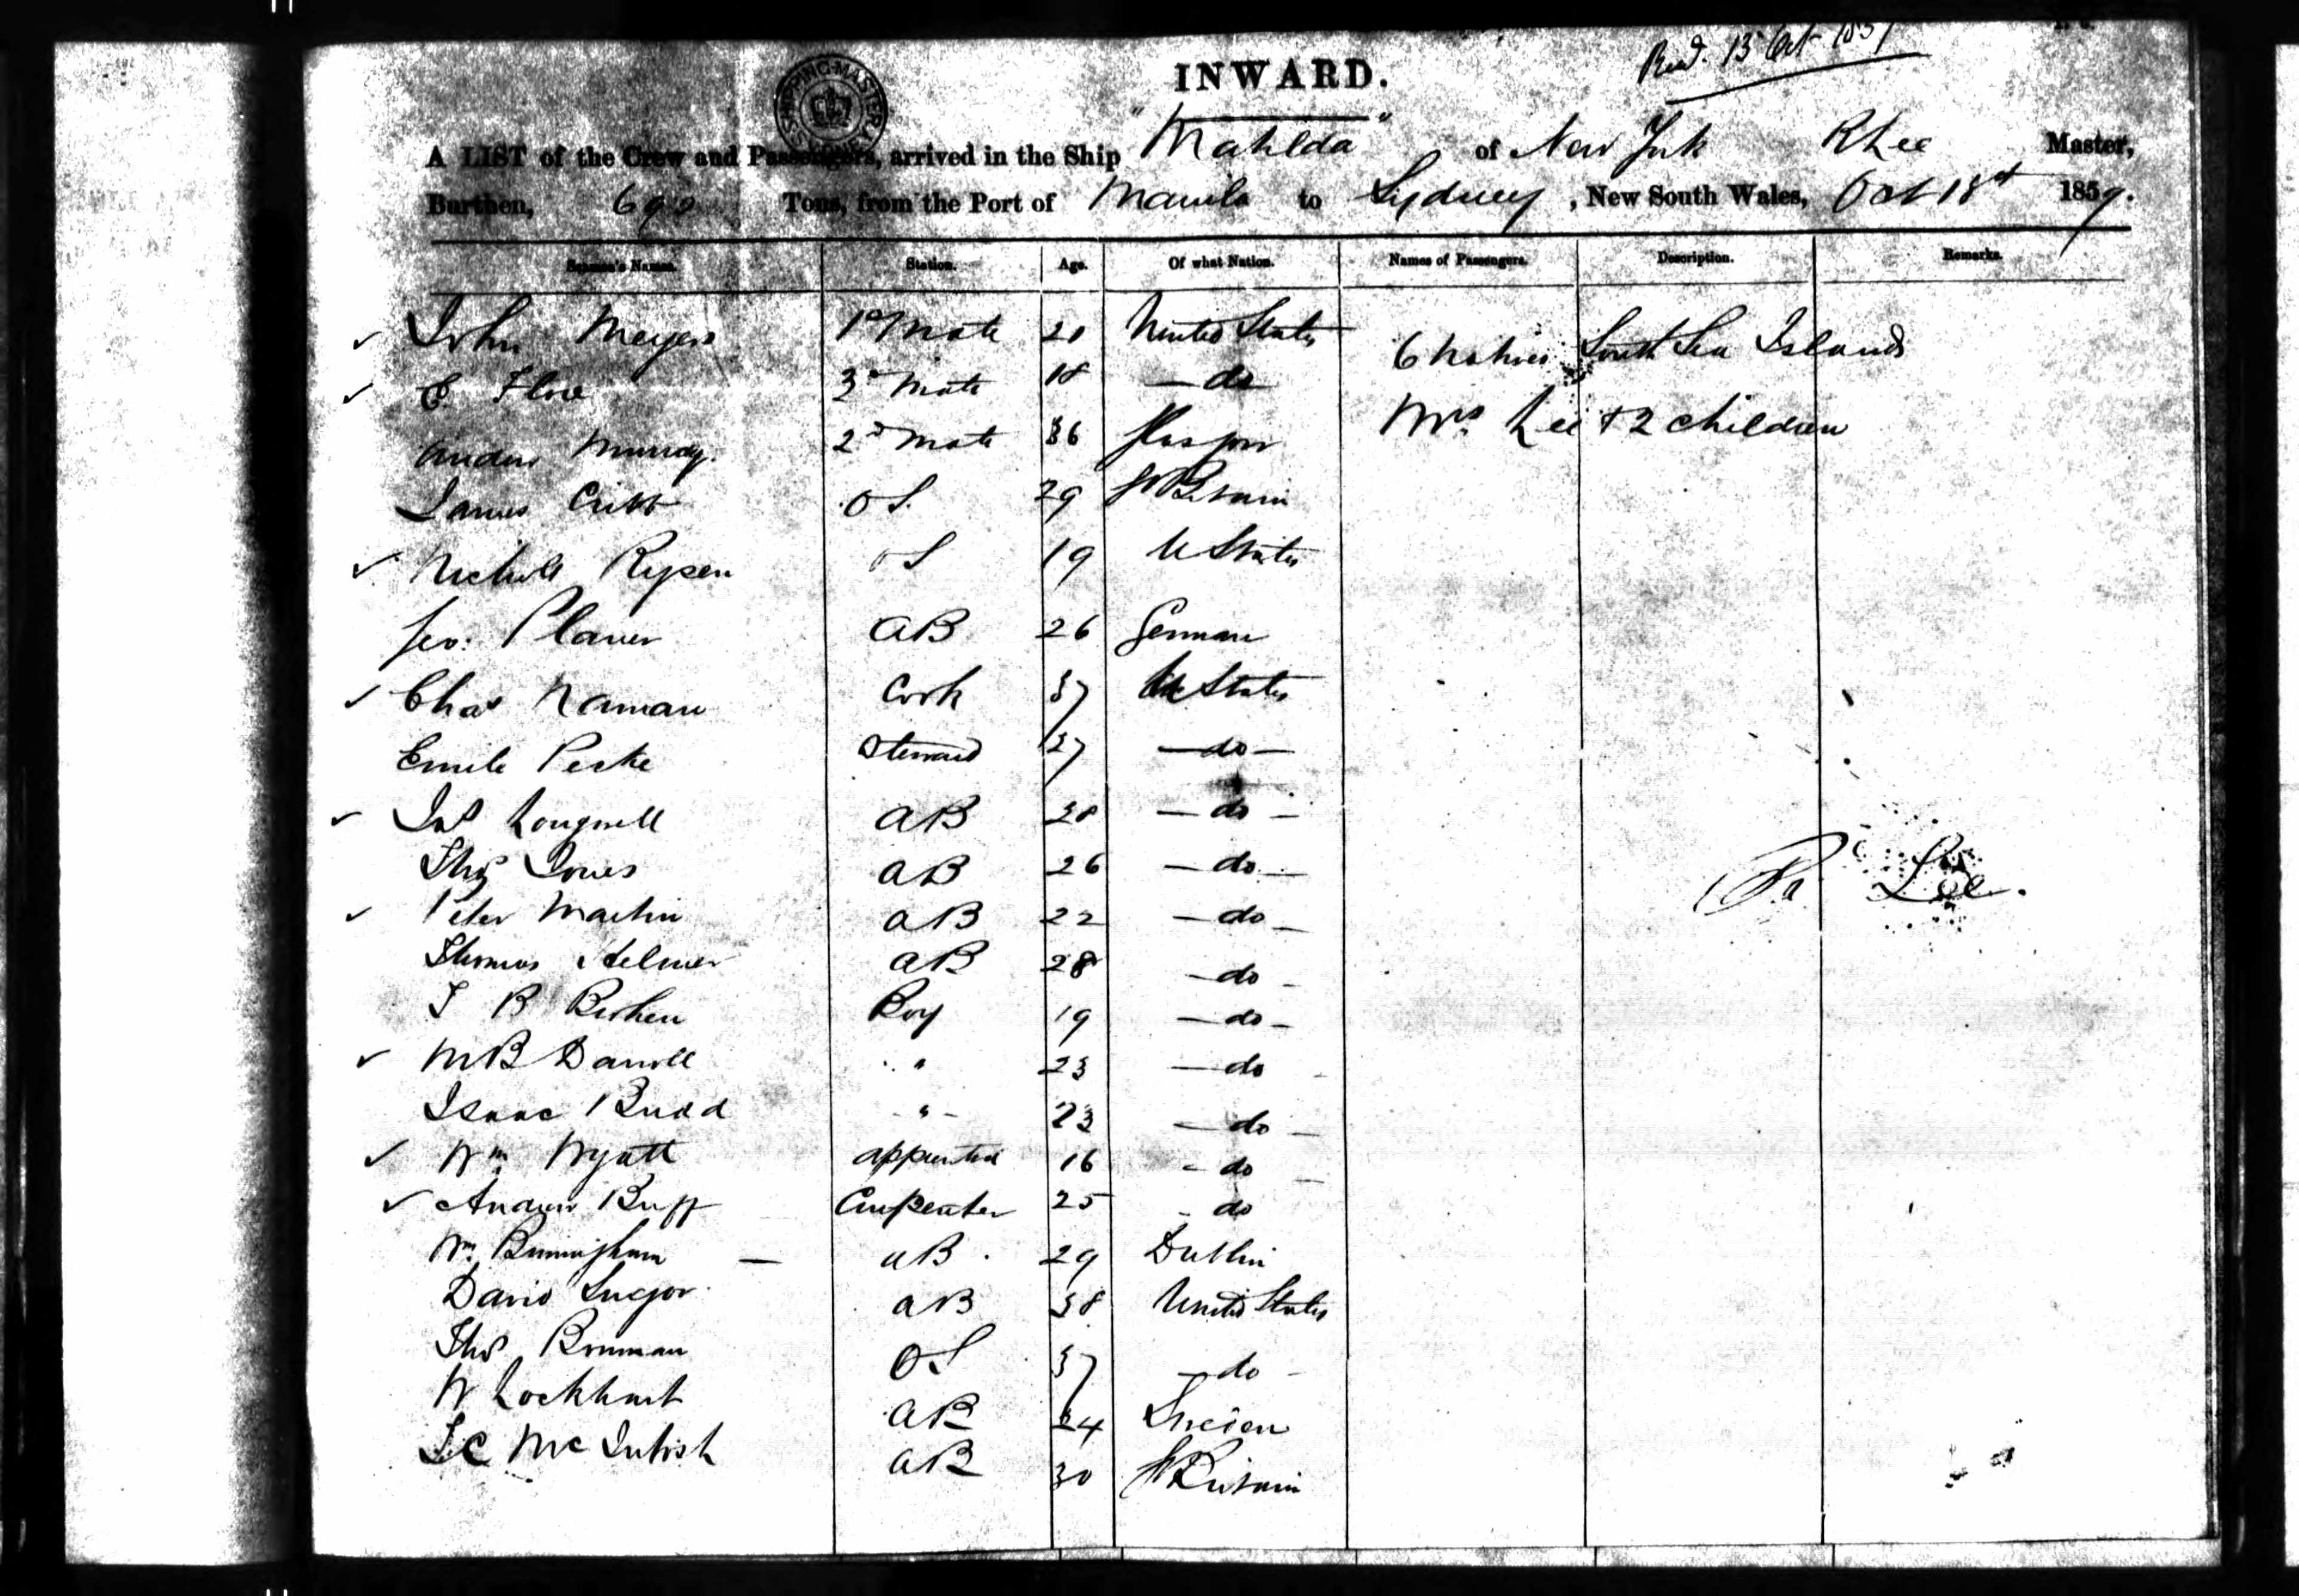 Recd. 13 Oct 1859
INWARD.
SHIPPING MASTER
A LIST of the Crew and Passengers, arrived in the Ship "Matilda" of New York R Lee Master,
Burthen, 690 Tons, from the Port of Manila to Sydney, New South Wales, Oct 18st 1859.
Seamen's Names. Station. Age. Of what Nation. Names of Passengers. Description. Remarks.
✓ John Meyers 1st Mate 20 United States 6 natives South Sea Islands
✓ E. Flore 3d Mate 18 — do
Andew Murray. 2d Mate 36 Glasgow Mrs. Lee + 2 children
James OS. 29 G Britain
✓ Rypen OS 19 U States
Geo: AB 26 German
✓ Chas Naman Cook 37 U States
Emile Peske Steward 27 — do —
✓ Jas Longwell AB 28 — do —
Thos Jones AB 26 — do —
✓ Peter Martin AB 22 — do —
Thomas Helmer AB 28 — do —
R Lee.
J B Boy 19 — do —
✓ M B Darrell " 23 — do
Isaac Budd " 23 — do —
✓ Wm Wyatt apprentice 16 — do
✓ Andrew Bupp Carpenter 25 do
Wm. Birmingham — AB. 29 Dublin
David AB 38 United States
Thos Bowman OS 37 — do —
W Lockhart AB 24
J.C McIntosh AB 30 G Britain